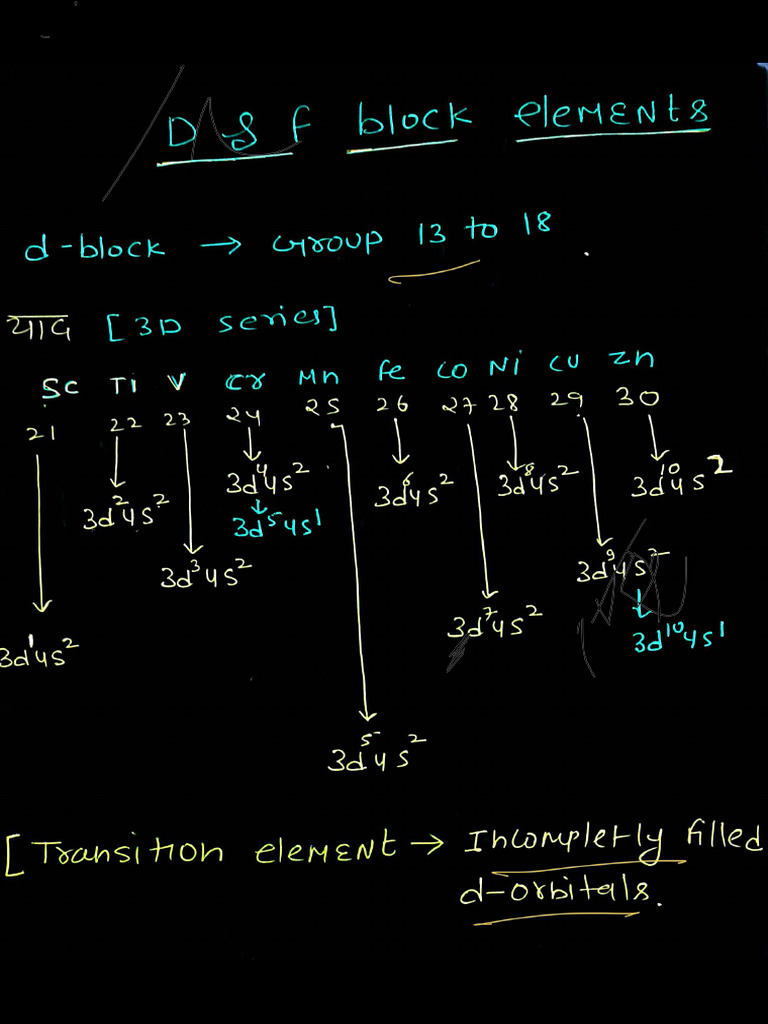 D & f block elements
d-block → Group 13 to 18
याद [3D series]
Sc Ti V Cr Mn Fe Co Ni Cu Zn
21 22 23 24 25 26 27 28 29 30
3d⁴4s² 3d⁶4s² 3d⁸4s² 3d¹⁰4s²
3d²4s² 3d⁵4s¹
3d³4s² 3d⁹4s²
3d¹4s² 3d⁷4s² 3d¹⁰4s¹
3d⁵4s²
[Transition element → Incompletly filled
d-orbitals.